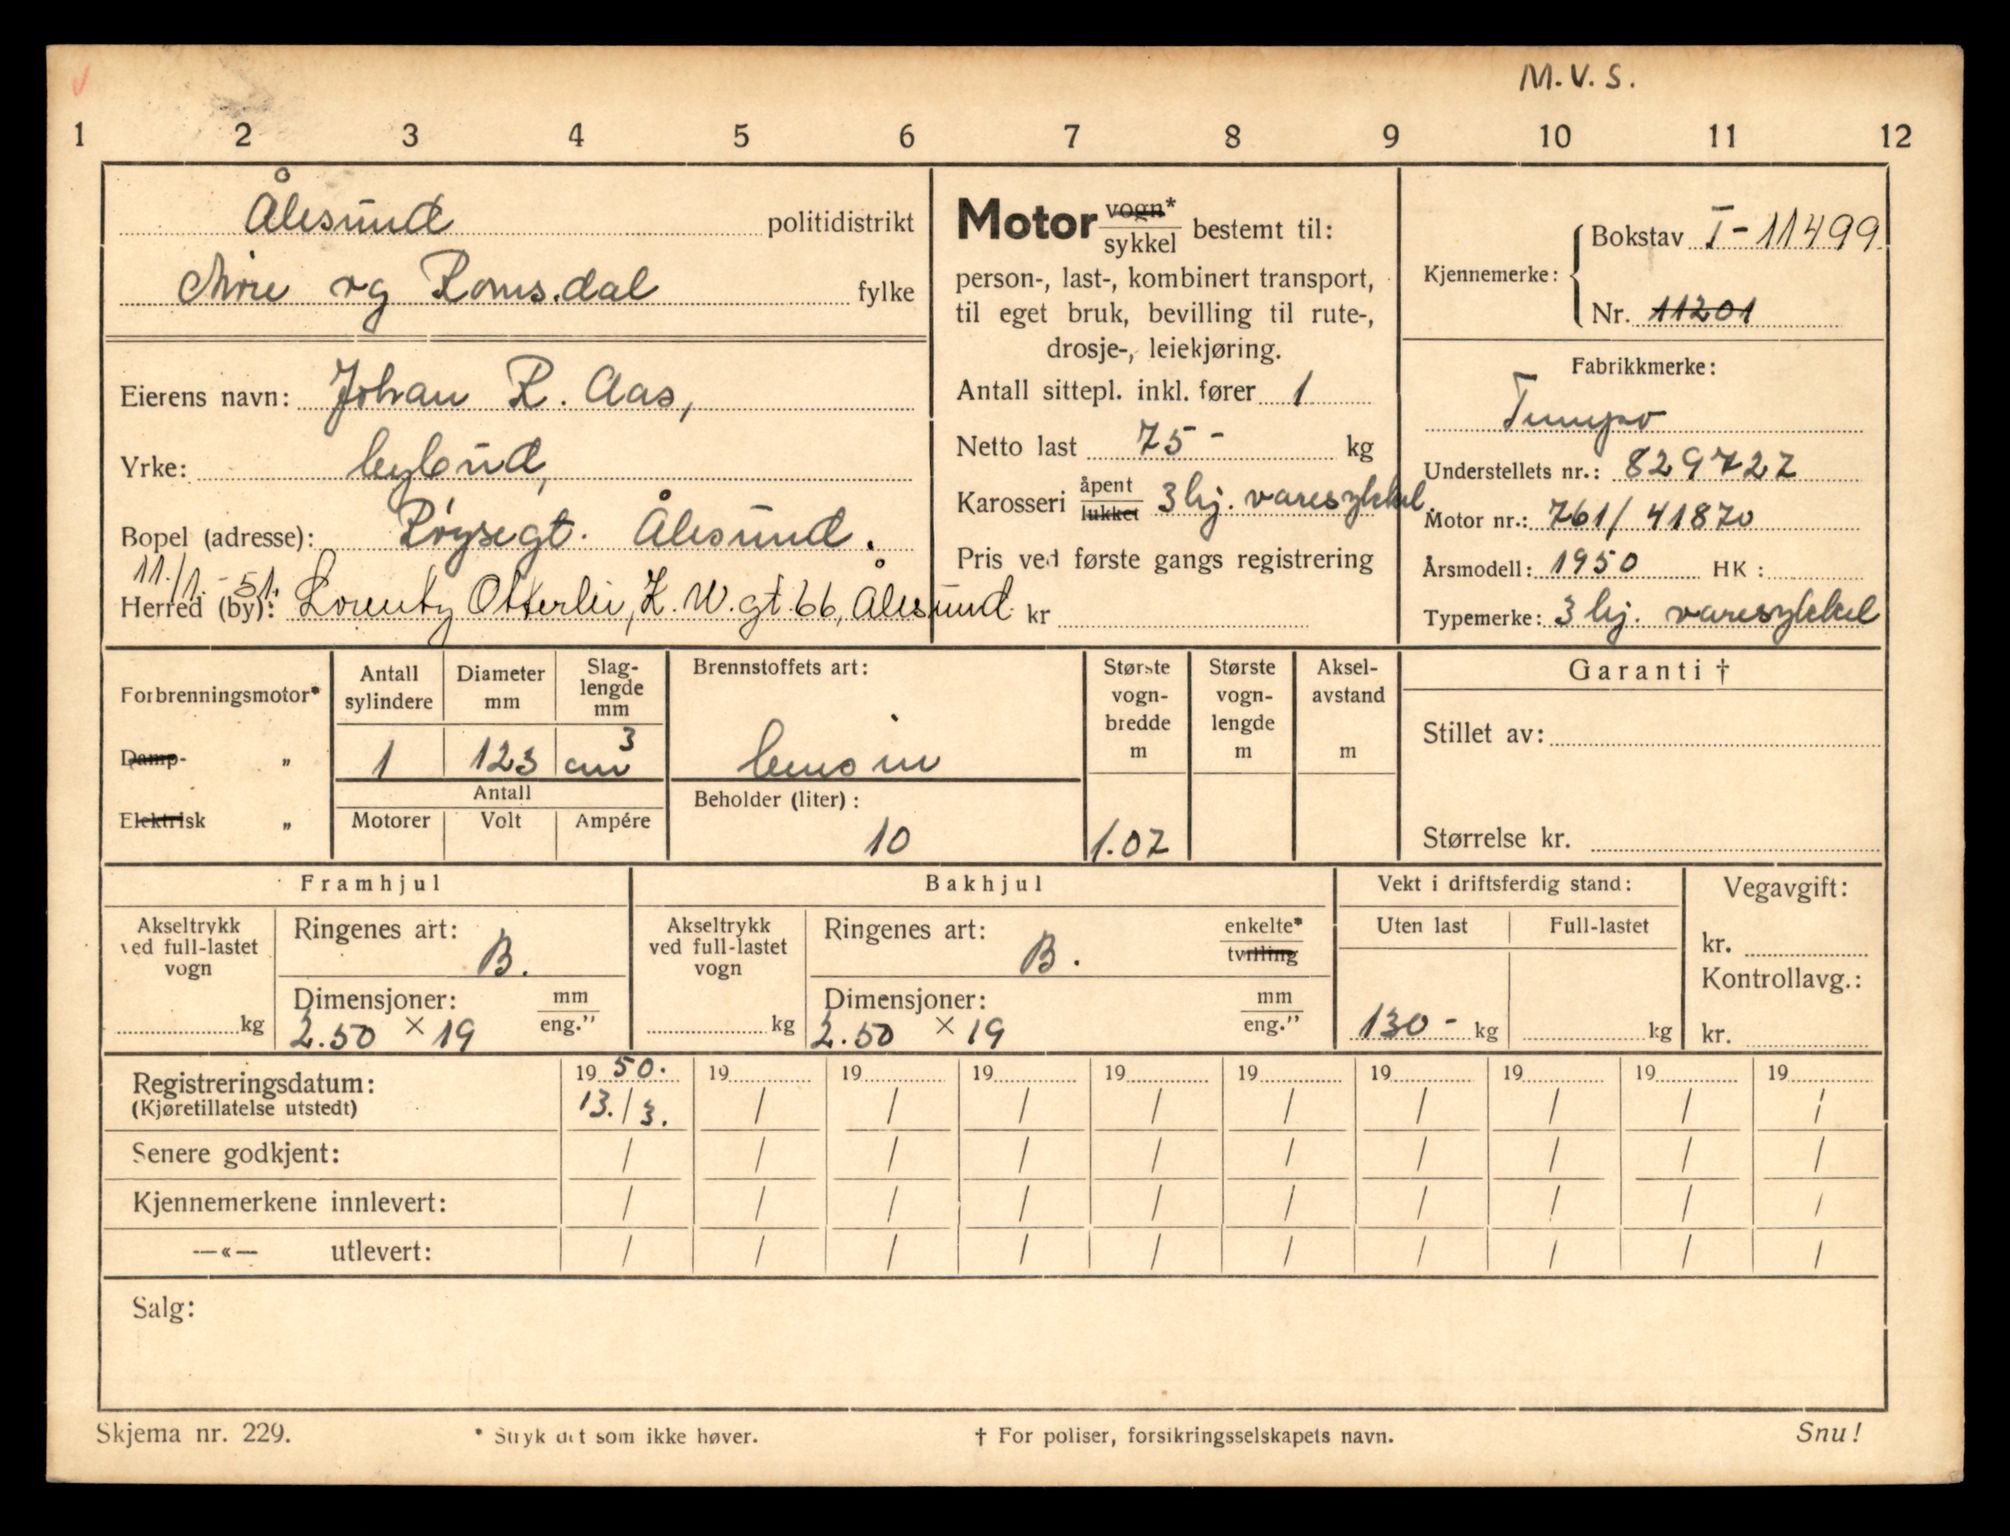 M.V.S.
1 2 3 4 5 6 7 8 9 10 11 12
Ålesund politidistrikt
Møre og Romsdal fylke
Eierens navn: Johan R. Aas,
Yrke: bybud,
Bopel (adresse): Røysegt. Ålesund.
11./1. - 51.
Herred (by): Lorentz Otterlei, K. W. gt. 66, Ålesund
Motor vogn* / sykkel bestemt til:
person-, last-, kombinert transport,
til eget bruk, bevilling til rute-,
drosje-, leiekjøring.
Antall sittepl. inkl. fører 1
Netto last 75- kg
Karosseri åpent / lukket 3 hj. varesykkel.
Pris ved første gangs registrering
kr
Kjennemerke:
Bokstav T-11499
Nr. 11201
Fabrikkmerke:
Tempo
Understellets nr.: 829722
Motor nr.: 761/41870
Årsmodell: 1950 HK:
Typemerke: 3 hj. varesykkel
Forbrenningsmotor*
Damp- „
Elektrisk „
Antall sylindere
Diameter mm
Slag-lengde mm
1 123 cm³
Antall
Motorer Volt Ampére
Brennstoffets art:
bensin
Beholder (liter):
10
Største vogn-bredde m
1.02
Største vogn-lengde m
Aksel-avstand m
Garanti †
Stillet av:
Størrelse kr.
Framhjul
Akseltrykk ved full-lastet vogn
kg
Ringenes art: B.
Dimensjoner: mm / eng."
2.50 × 19
Bakhjul
Akseltrykk ved full-lastet vogn
kg
Ringenes art: B. enkelte* / tvilling
Dimensjoner: mm / eng."
2.50 × 19
Vekt i driftsferdig stand:
Uten last Full-lastet
130- kg kg
Vegavgift:
kr.
Kontrollavg.:
kr.
Registreringsdatum: 1950. 19 19 19 19 19 19 19 19 19
(Kjøretillatelse utstedt) 13./3. / / / / / / / / /
Senere godkjent: / / / / / / / / / /
Kjennemerkene innlevert: / / / / / / / / / /
—«— utlevert: / / / / / / / / / /
Salg:
Skjema nr. 229. * Stryk det som ikke høver. † For poliser, forsikringsselskapets navn. Snu!